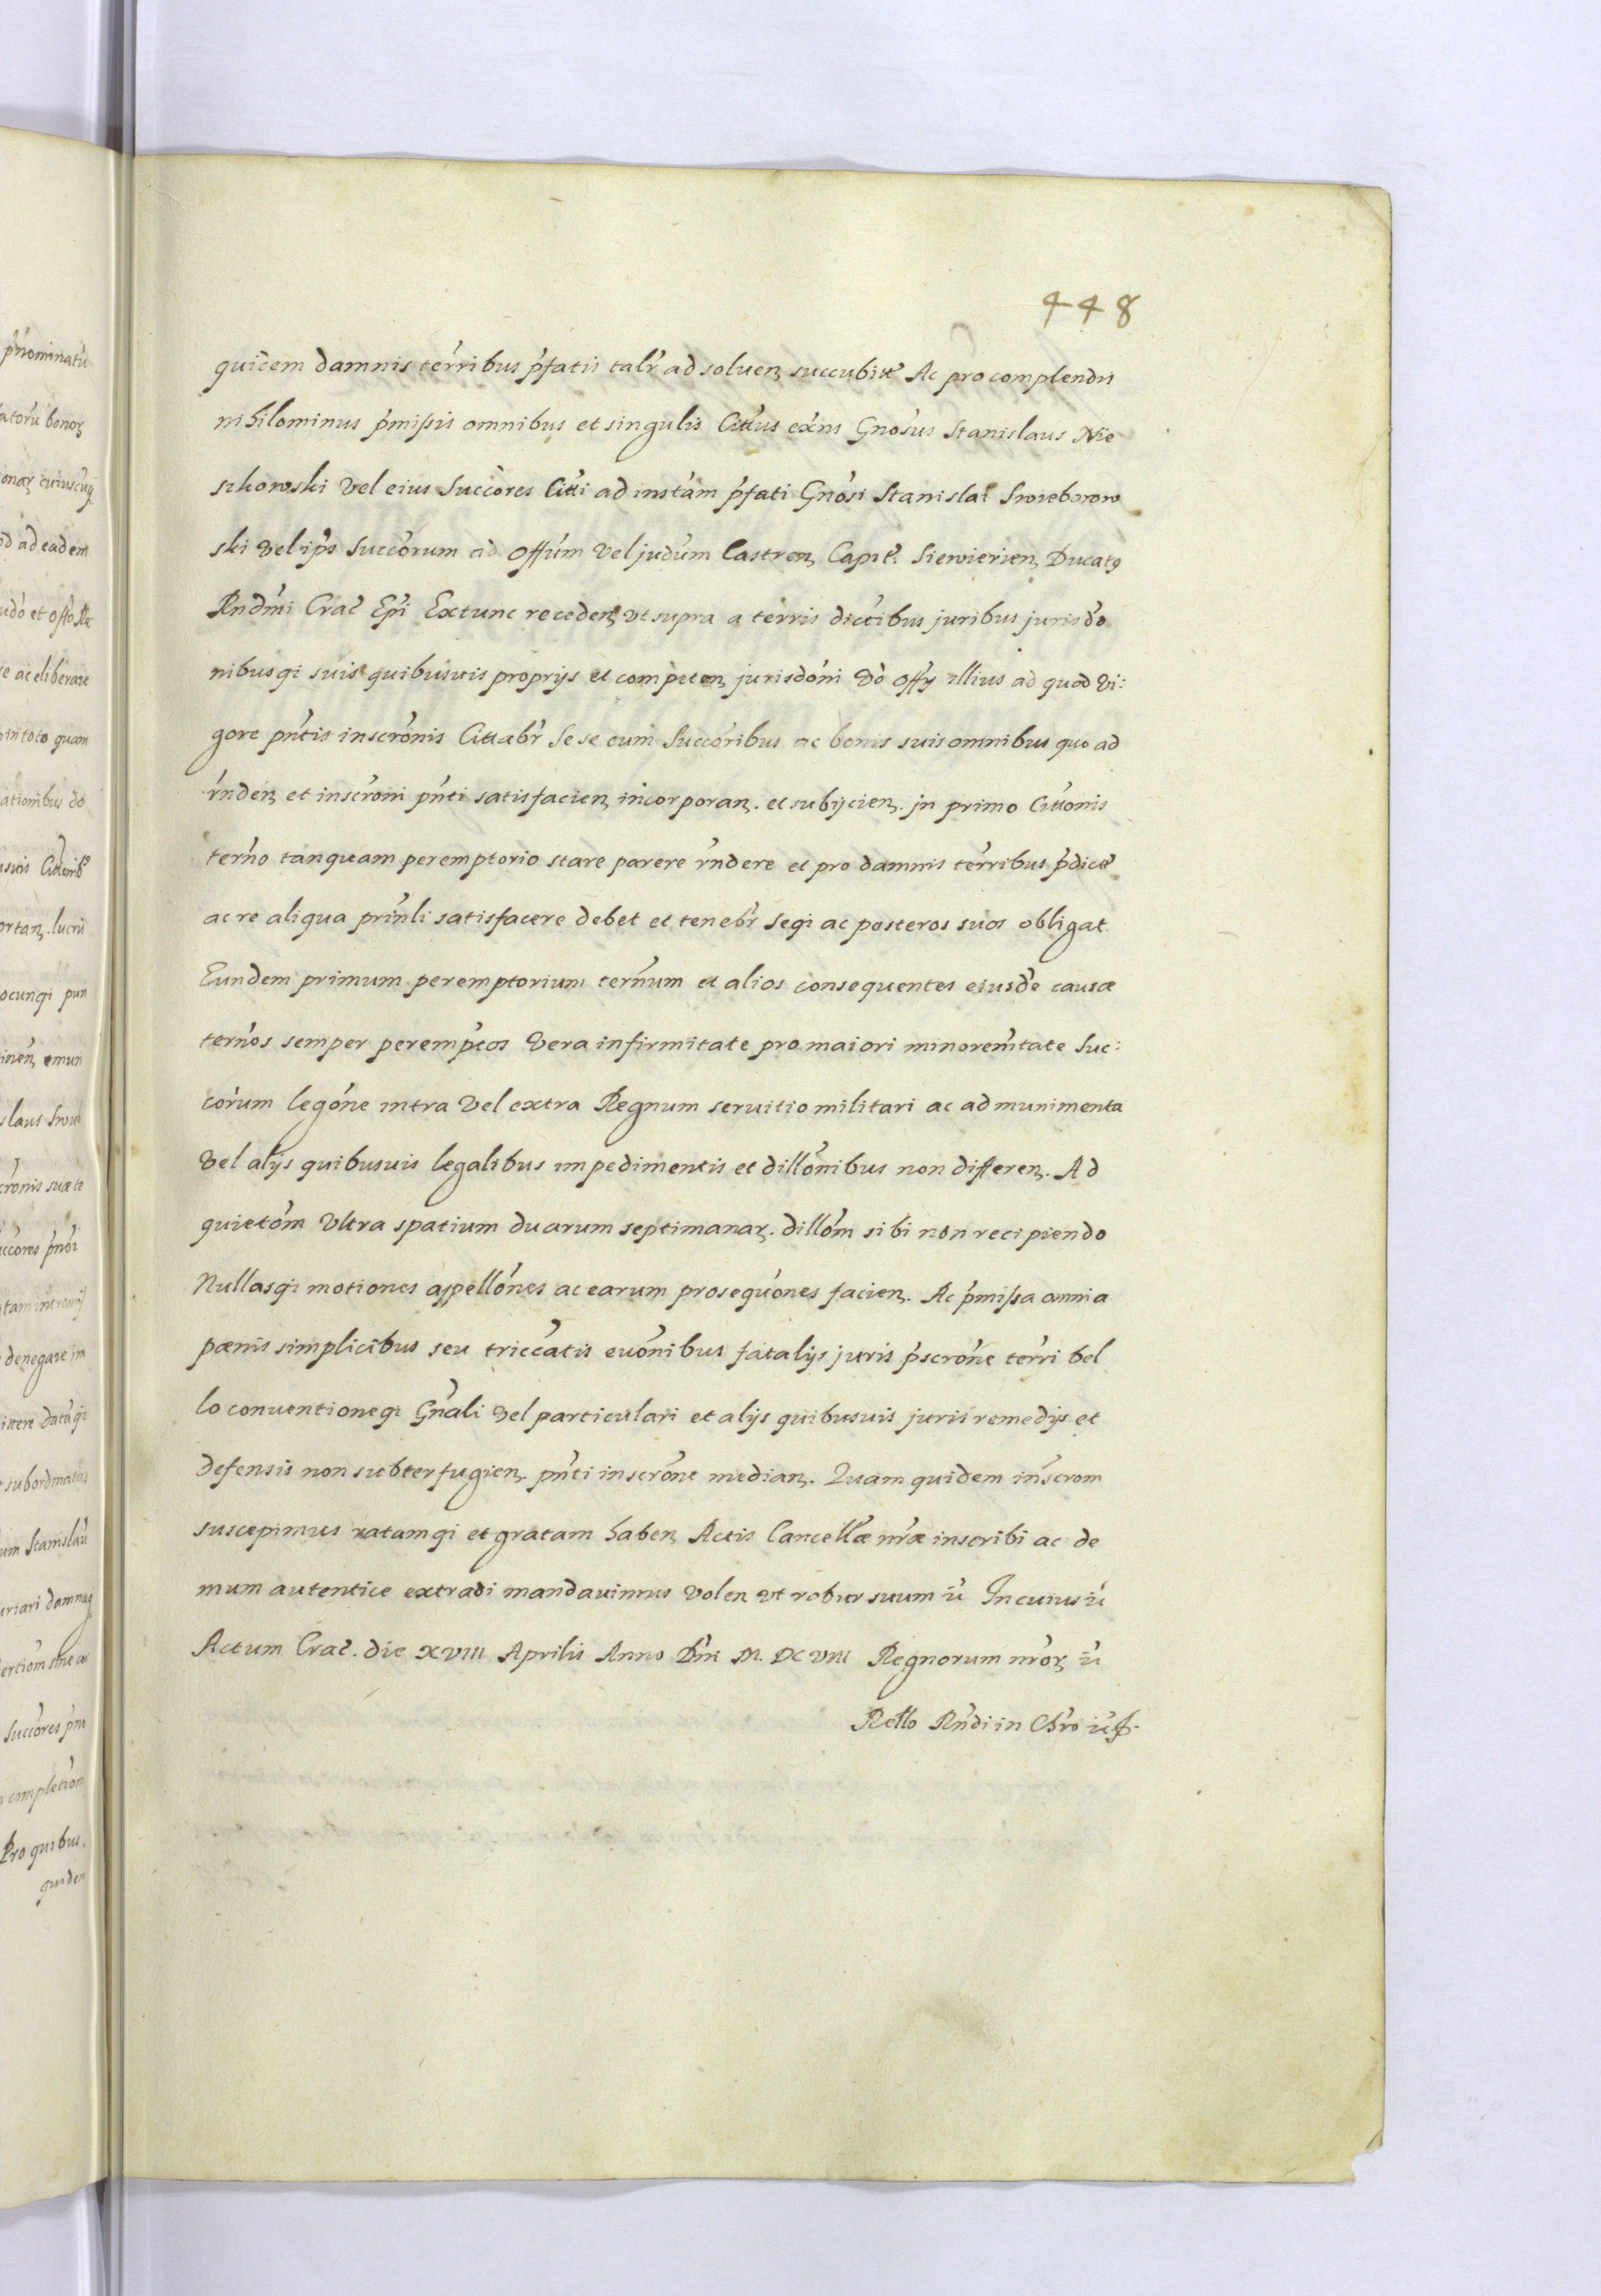 448
quidem damnis terribus pfatis talr ad soluen succubitt Ac pro complendis
nihilominus pmissis omnibus et singulis Cittus exns Gnosus Stanislaus Nie
szkowski vel eius Succores Citti ad instam pfati Gnosi Stanislai Swieborow
ski vel ips Succorum ad Offum vel judum Castren Capit. Siewierien Ducatq
Rndmi Crac Epi Extunc receden vt supra a terris dictibus juribus jurisdo
nibusqi suis quibusuis proprijs et competen jurisdoni do offy illius ad quod vi:
gore pntis inscronis Cittabr Se se cum Succoribus ac bonis suis omnibus quo ad
rnden et inscroni pnti satisfacien incorporan. et subijcien. jn primo Cittonis
terno tanquam peremptorio stare parere rndere et pro damnis terribus pdictt
ac re aliqua prinli satisfacere debet et tenebr seqi ac posteros suos obligat.
Eundem primum peremptorium ternum et alios consequentes eiusde causæ
ternos semper perempcos vera infirmitate pro maiori minoremtate Suc:
corum legone intra vel extra Regnum seruitio militari ac ad munimenta
vel alijs quibusuis legalibus impedimentis et dillonibus non differen. Ad
quietom vltra spatium duarum septimanar. dillom sibi non recipiendo
Nullasqi motiones appellones ac earum prosequones facien. Ac pmissa omnia
pænis simplicibus seu triccatis euonibus fatalijs juris pscrone terri bel
lo conuentioneqi Gnali vel particulari et alijs quibusuis juris remedijs et
defensis non subterfugien. pnti inscrone median. Quam quidem inscrom
suscepimus ratamqi et gratam haben Actis Cancellæ nræ inscribi ac de
mum autentice extradi mandauimus volen vt robur suum ii In cuius ii
Actum Crac. die XVIII Aprilis Anno Dni M. DC VIII Regnorum nror ii
Rello Rndi in Chro ii
pnominatu
atoru bonor
ad eadem
e ac eliberare
in toto quam
ationibus do
ortan. lucru
ocunqi pun
slaus Swieb
cronis suæ te
denegare im
ittere datuqi
subordinatas
um Stanislau
uriari damnaq
Succores pno
completiom
Pro quibus.
quidem